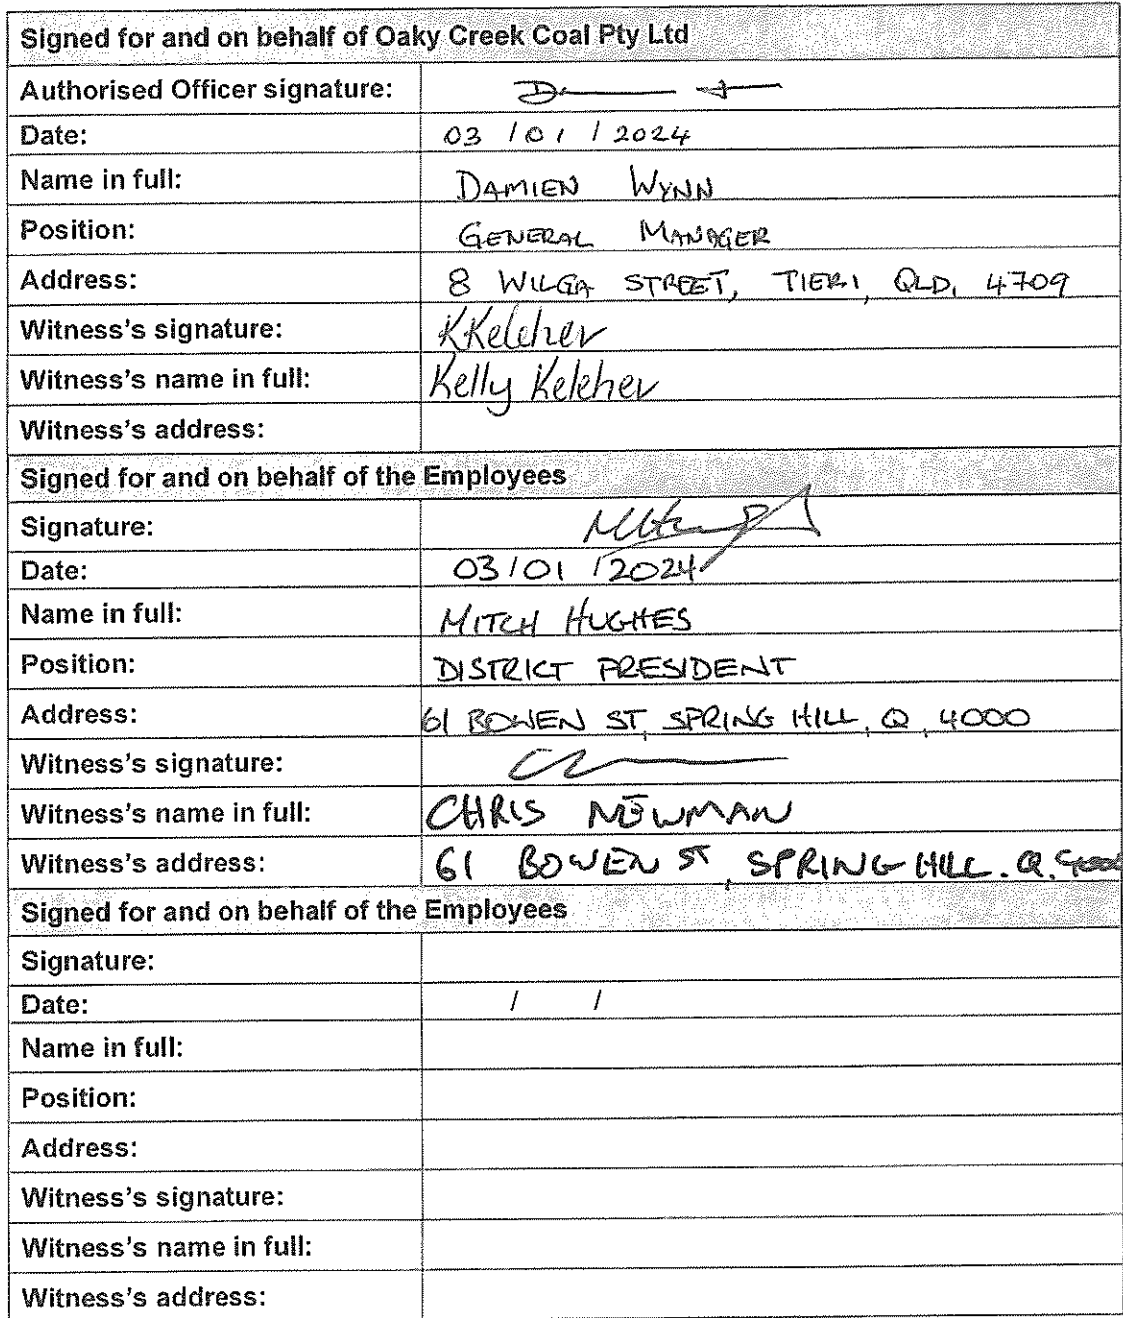 Signed for and on behalf of Oaky Creek Coal Pty Ltd
Authorised Officer signature:
Date: 03 / 01 / 2024
Name in full: DAMIEN WYNN
Position: GENERAL MANAGER
Address: 8 WILGA STREET, TIERI, QLD, 4709
Witness's signature: KKeleher
Witness's name in full: Kelly Keleher
Witness's address:
Signed for and on behalf of the Employees
Signature:
Date: 03 / 01 / 2024
Name in full: MITCH HUGHES
Position: DISTRICT PRESIDENT
Address: 61 BOWEN ST, SPRING HILL, Q, 4000
Witness's signature:
Witness's name in full: CHRIS NEWMAN
Witness's address: 61 BOWEN ST, SPRING HILL. Q. 4000
Signed for and on behalf of the Employees
Signature:
Date: / /
Name in full:
Position:
Address:
Witness's signature:
Witness's name in full:
Witness's address: